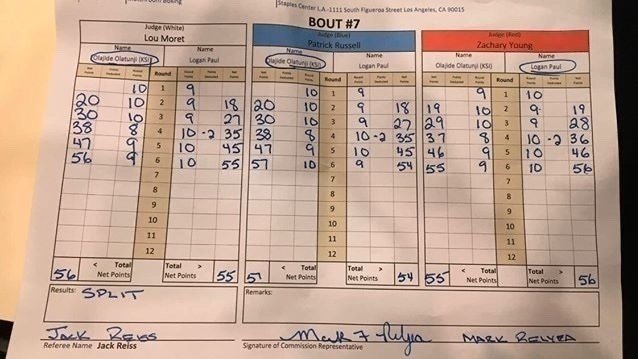 Staples Center L.A -1111 South Figueroa Street Los Angeles, CA 90015
BOUT #7
Judge (White) Judge (Blue) Judge (Red)
Lou Moret Patrick Russell Zachary Young
Name Name Name Name Name Name
Olajide Olatunji (KSI) Logan Paul Olajide Olatunji (KSI) Logan Paul Olajide Olatunji (KSI) Logan Paul
Round Round Round
10 1 9 10 1 9 9 1 10
20 10 2 9 18 20 10 2 9 18 19 10 2 9 19
30 10 3 9 27 30 10 3 9 27 29 10 3 9 28
38 8 4 10 -2 35 38 8 4 10 -2 35 37 8 4 10 -2 36
47 9 5 10 45 47 9 5 10 45 46 9 5 10 46
56 9 6 10 55 57 10 6 9 54 55 9 6 10 56
7 7 7
8 8 8
9 9 9
10 10 10
11 11 11
12 12 12
56 < Total Net Points Total > Net Points 55 57 < Total Net Points Total > Net Points 54 55 < Total Net Points Total > Net Points 56
Results: SPLIT Remarks:
JACK REISS MARK RELYEA
Referee Name Jack Reiss Signature of Commission Representative